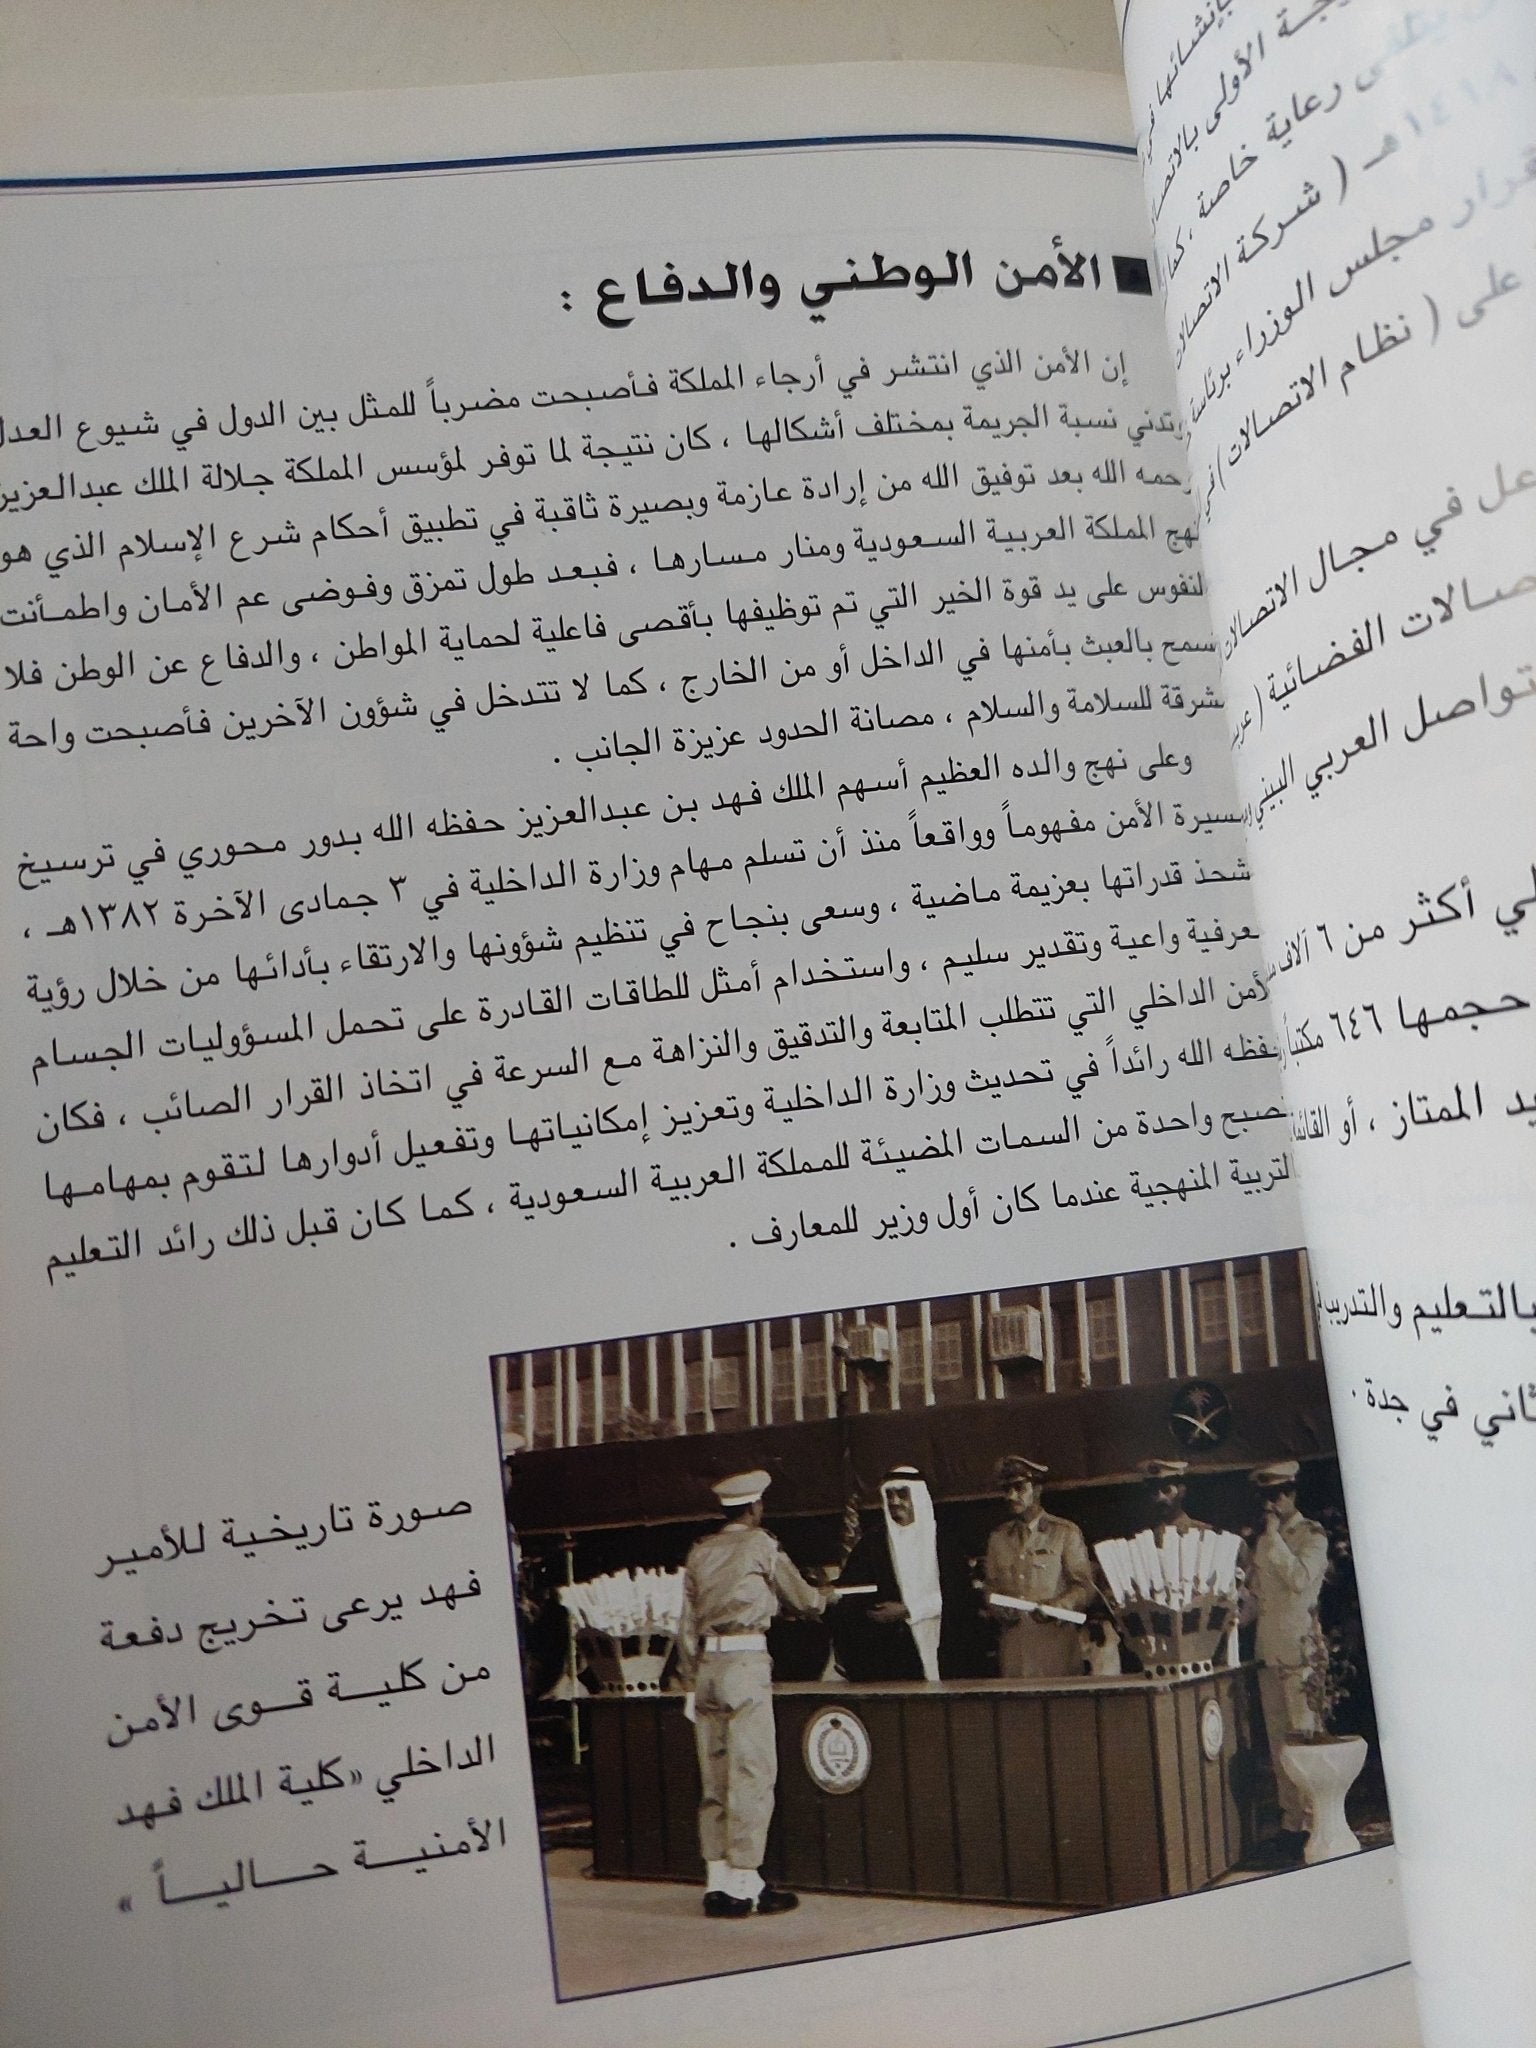 الأمن الوطني والدفاع :
إن الأمن الذي انتشر في أرجاء المملكة فأصبحت مضرباً للمثل بين الدول في شيوع العدل
وتدني نسبة الجريمة بمختلف أشكالها ، كان نتيجة لما توفر لمؤسس المملكة جلالة الملك عبدالعزيز
رحمه الله بعد توفيق الله من إرادة عازمة وبصيرة ثاقبة في تطبيق أحكام شرع الإسلام الذي هو
نهج المملكة العربية السعودية ومنار مسارها ، فبعد طول تمزق وفوضى عم الأمان واطمأنت
النفوس على يد قوة الخير التي تم توظيفها بأقصى فاعلية لحماية المواطن ، والدفاع عن الوطن فلا
تسمح بالعبث بأمنها في الداخل أو من الخارج ، كما لا تتدخل في شؤون الآخرين فأصبحت واحة
مشرقة للسلامة والسلام ، مصانة الحدود عزيزة الجانب .
وعلى نهج والده العظيم أسهم الملك فهد بن عبدالعزيز حفظه الله بدور محوري في ترسيخ
مسيرة الأمن مفهوماً وواقعاً منذ أن تسلم مهام وزارة الداخلية في ٣ جمادى الآخرة ١٣٨٢هـ ،
شحذ قدراتها بعزيمة ماضية ، وسعى بنجاح في تنظيم شؤونها والارتقاء بأدائها من خلال رؤية
معرفية واعية وتقدير سليم ، واستخدام أمثل للطاقات القادرة على تحمل المسؤوليات الجسام
للأمن الداخلي التي تتطلب المتابعة والتدقيق والنزاهة مع السرعة في اتخاذ القرار الصائب ، فكان
حفظه الله رائداً في تحديث وزارة الداخلية وتعزيز إمكانياتها وتفعيل أدوارها لتقوم بمهامها
لتصبح واحدة من السمات المضيئة للمملكة العربية السعودية ، كما كان قبل ذلك رائد التعليم
والتربية المنهجية عندما كان أول وزير للمعارف .
صورة تاريخية للأمير
فهد يرعى تخريج دفعة
من كلية قوى الأمن
الداخلي «كلية الملك فهد
الأمنية حالياً »
بإنشائها في
الأولى بالاتصال
رعاية خاصة ، كما
١٤١٨هـ ( شركة الاتصالات
قرار مجلس الوزراء برئاسة
على ( نظام الاتصالات ) في
في مجال الاتصالات
الفضائية ( عرب
تواصل العربي البيني
أكثر من ٦ آلاف
حجمها ٦٤٦ مكتباً
الممتاز ، أو
بالتعليم والتدريب
في جدة .